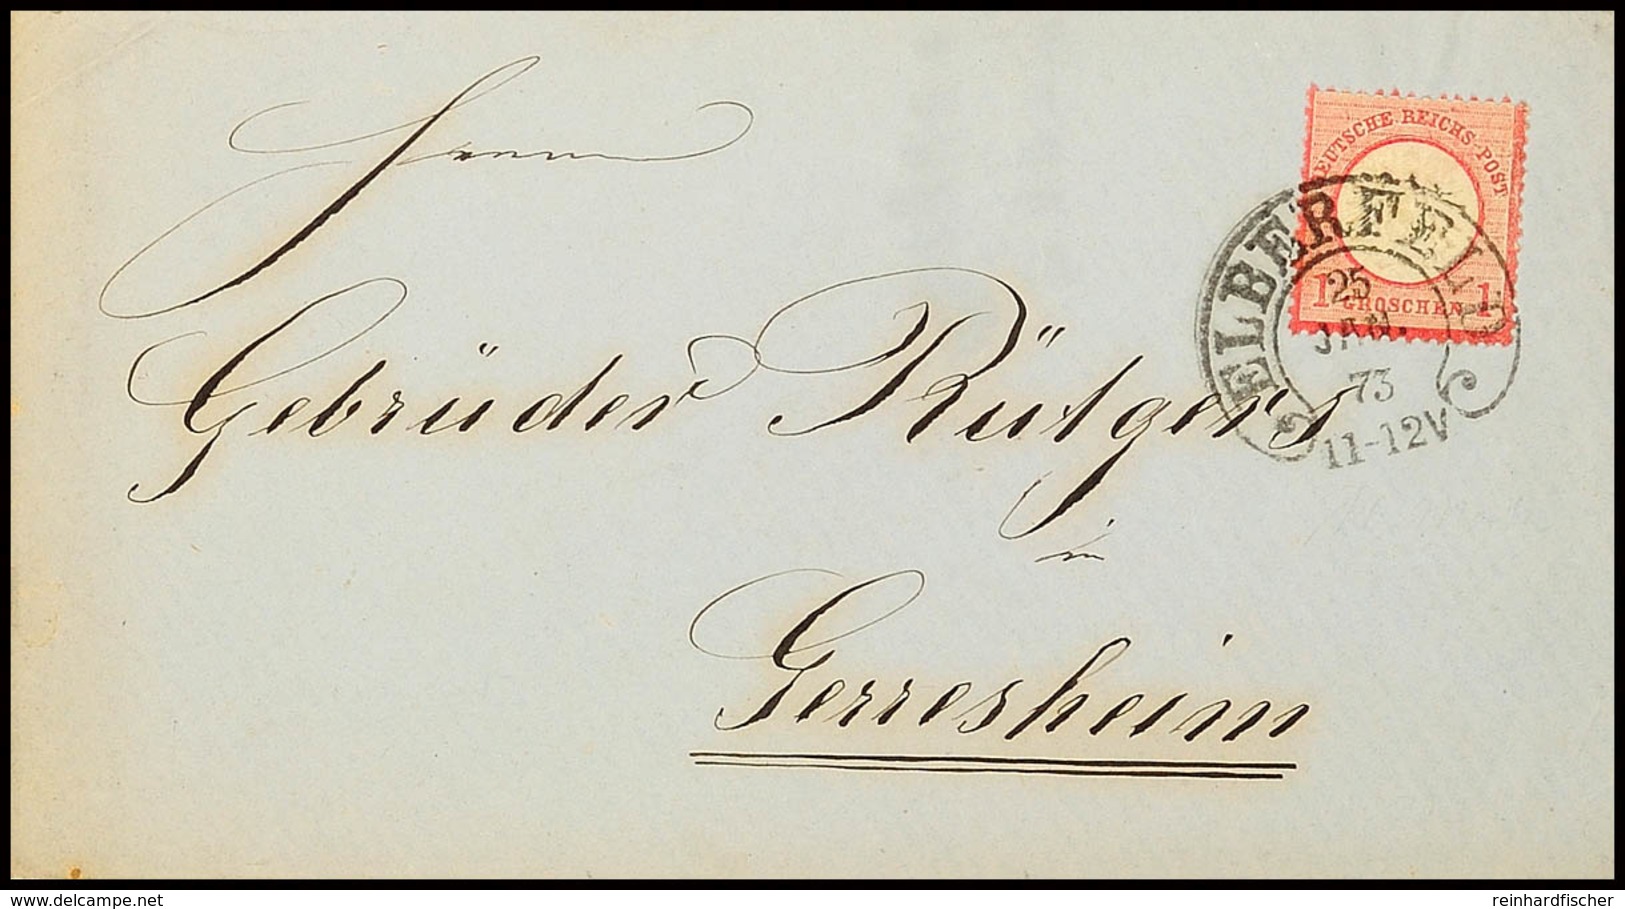 Herrn
DEUTSCHE REICHS-POST
1 GROSCHEN 1
ELBERFELD
25
JAN.
73
11-12V
Gebrüder Rütgers
in
Gerresheim
www.delcampe.net
reinhardfischer